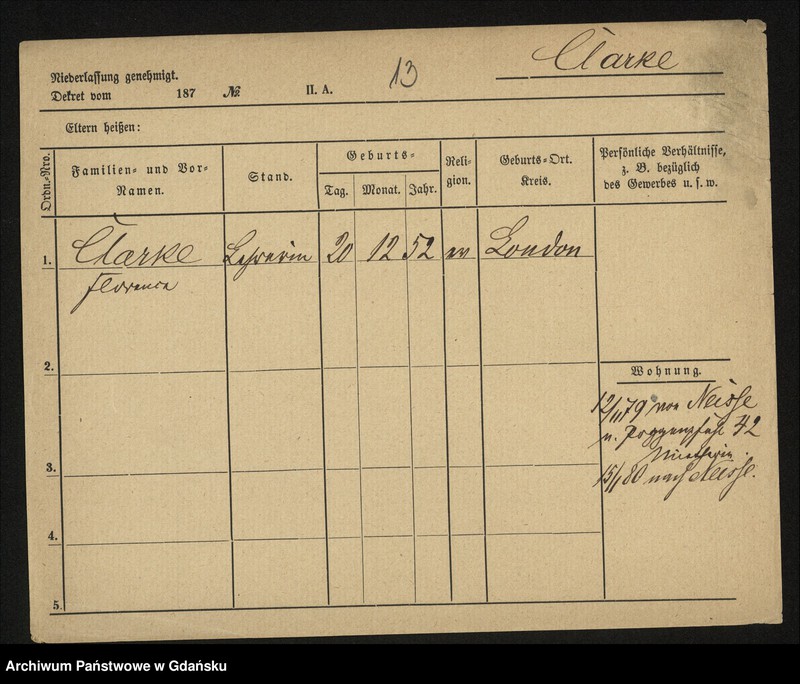 Clarke
Niederlassung genehmigt.
Dekret vom 187 № II. A. 13
Eltern heißen:
Ordn.=Nro.
Familien= und Vor=
Namen.
Stand.
Geburts=
Tag. Monat. Jahr.
Reli=
gion.
Geburts=Ort.
Kreis.
Persönliche Verhältnisse,
z. B. bezüglich
des Gewerbes u. s. w.
1. Clarke Lehrerin 20 12 52 ev London
Florence
2.
Wohnung.
12/11 79 von Neisse
n. Poggenpfuhl 42
3.
15/1 80 nach Neisse.
4.
5.
Archiwum Państwowe w Gdańsku